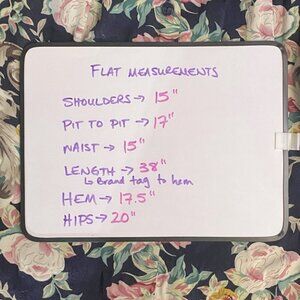 FLAT MEASUREMENTS
SHOULDERS → 15"
PIT TO PIT → 17"
WAIST → 15"
LENGTH → 38"
↳ Brand tag to hem
HEM → 17.5"
HIPS → 20"